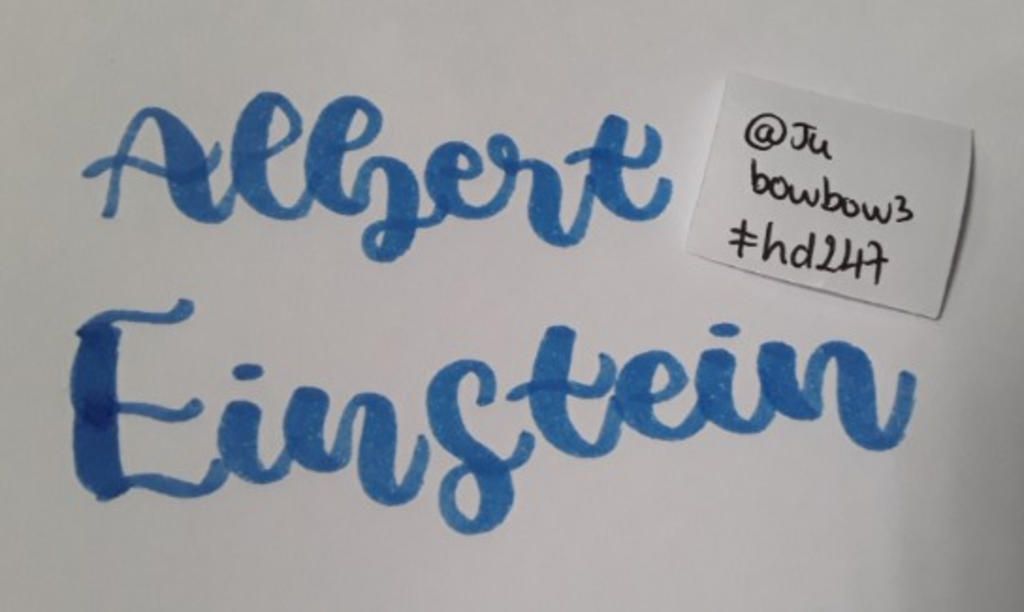 Albert
Einstein
@Ju
bowbow3
#hd247